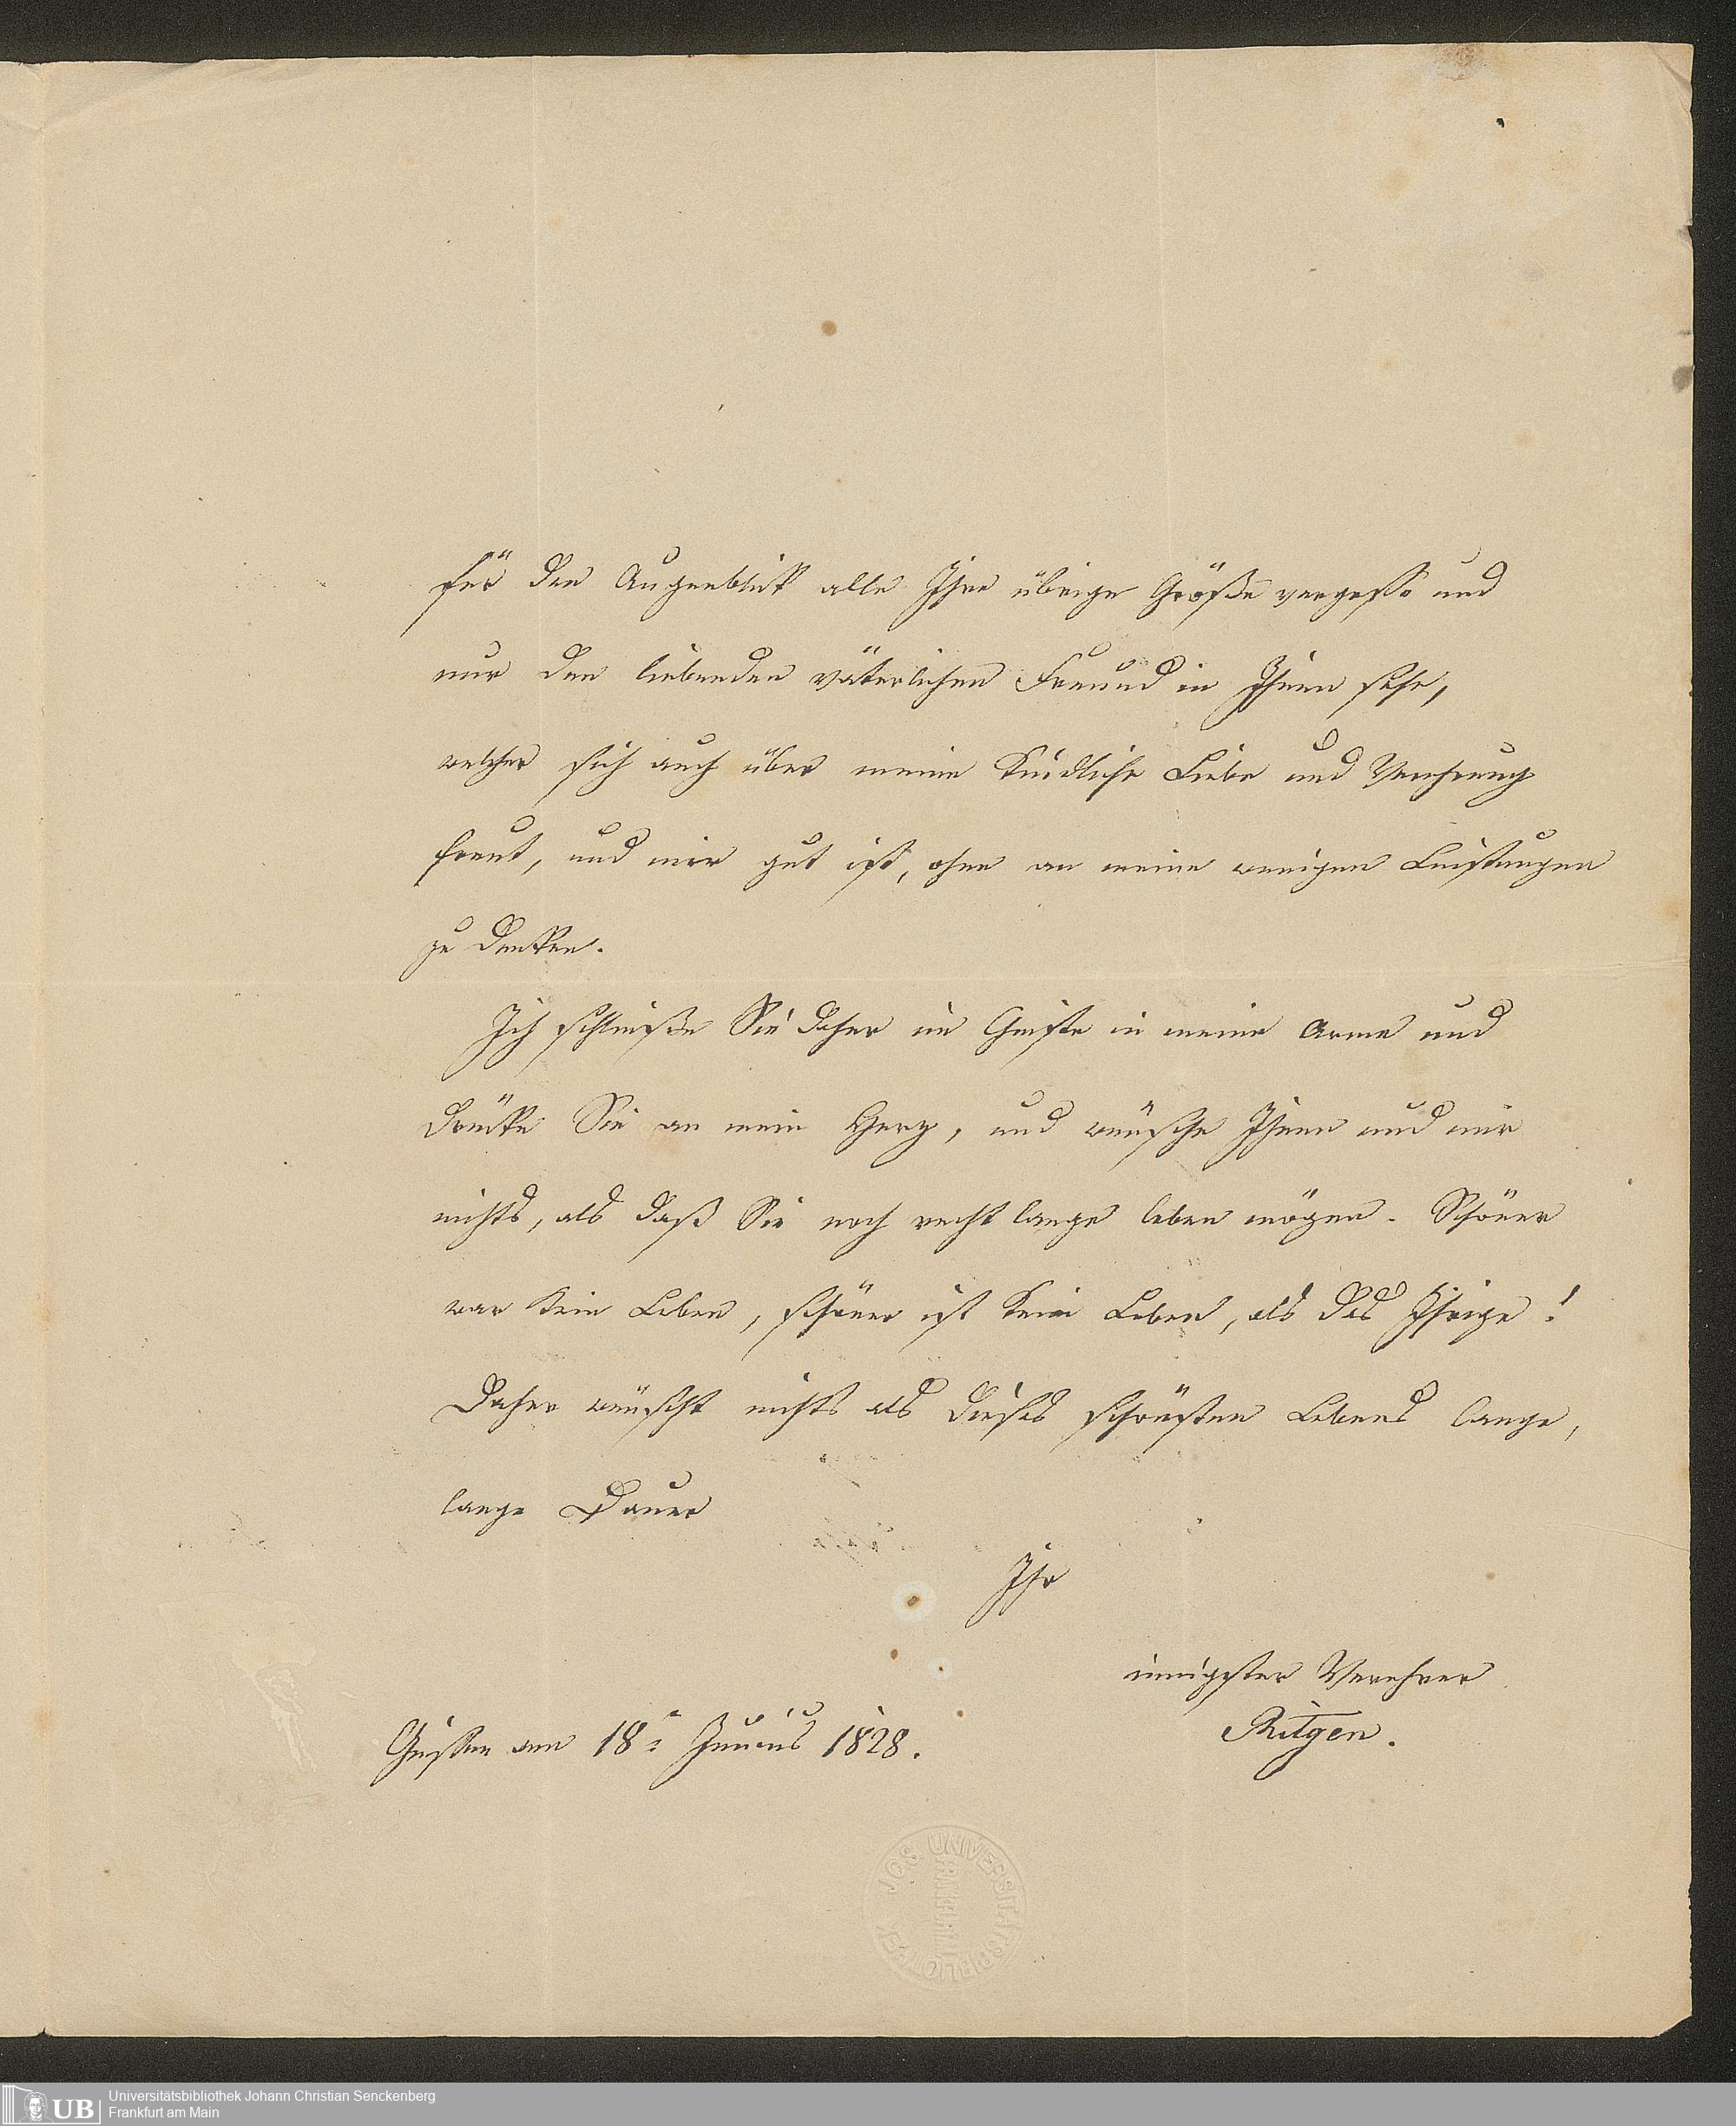 für den Augenblick alle Ihre übrige Größe vergesse und
nur den liebenden väterlichen Freund in Ihnen sehe,
welcher sich auch über meine kindliche Liebe und Verehrung
freut, und mir gut ist, ohne an meine wenigen Leistungen
zu denken.
Ich schließe Sie daher im Geiste in meine Arme und
drücke Sie an mein Herz, und wünsche Ihnen und mir
nichts, als daß Sie noch recht lange leben mögen. Schöner
war kein Leben, schöner ist kein Leben, als das Ihrige!
Daher wünscht nichts als dieses schönsten Lebens lange,
lange Dauer
Ihr
innigster Verehrer
Ritgen.
Giessen am 18n Junius 1828.
UNIVERSITÄTSBIBLIOTHEK
UB
Universitätsbibliothek Johann Christian Senckenberg
Frankfurt am Main